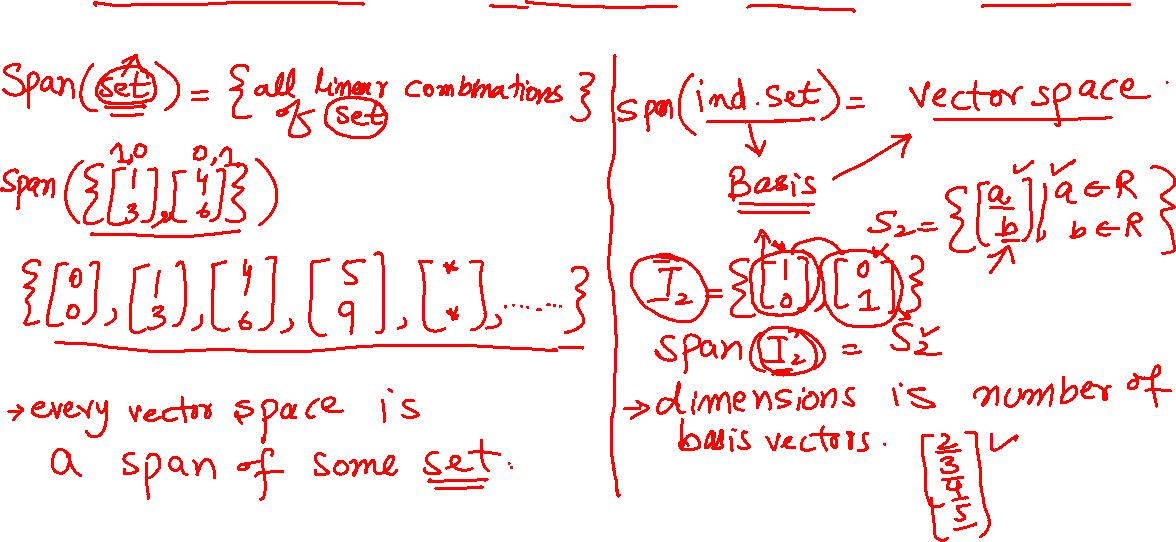 Span(set) = {all linear combinations of set}
1,0 0,1
span({[1 3], [4 6]})
{[0 0], [1 3], [4 6], [5 9], [* *], ......}
→ every vector space is
a span of some set.
span(ind. set) = vector space.
Basis
S₂ = {[a b], a ∈ R
b ∈ R}
I₂ = {[1 0] [0 1]}
span(I₂) = S₂
→ dimensions is number of
basis vectors.
[2 3 4 5]